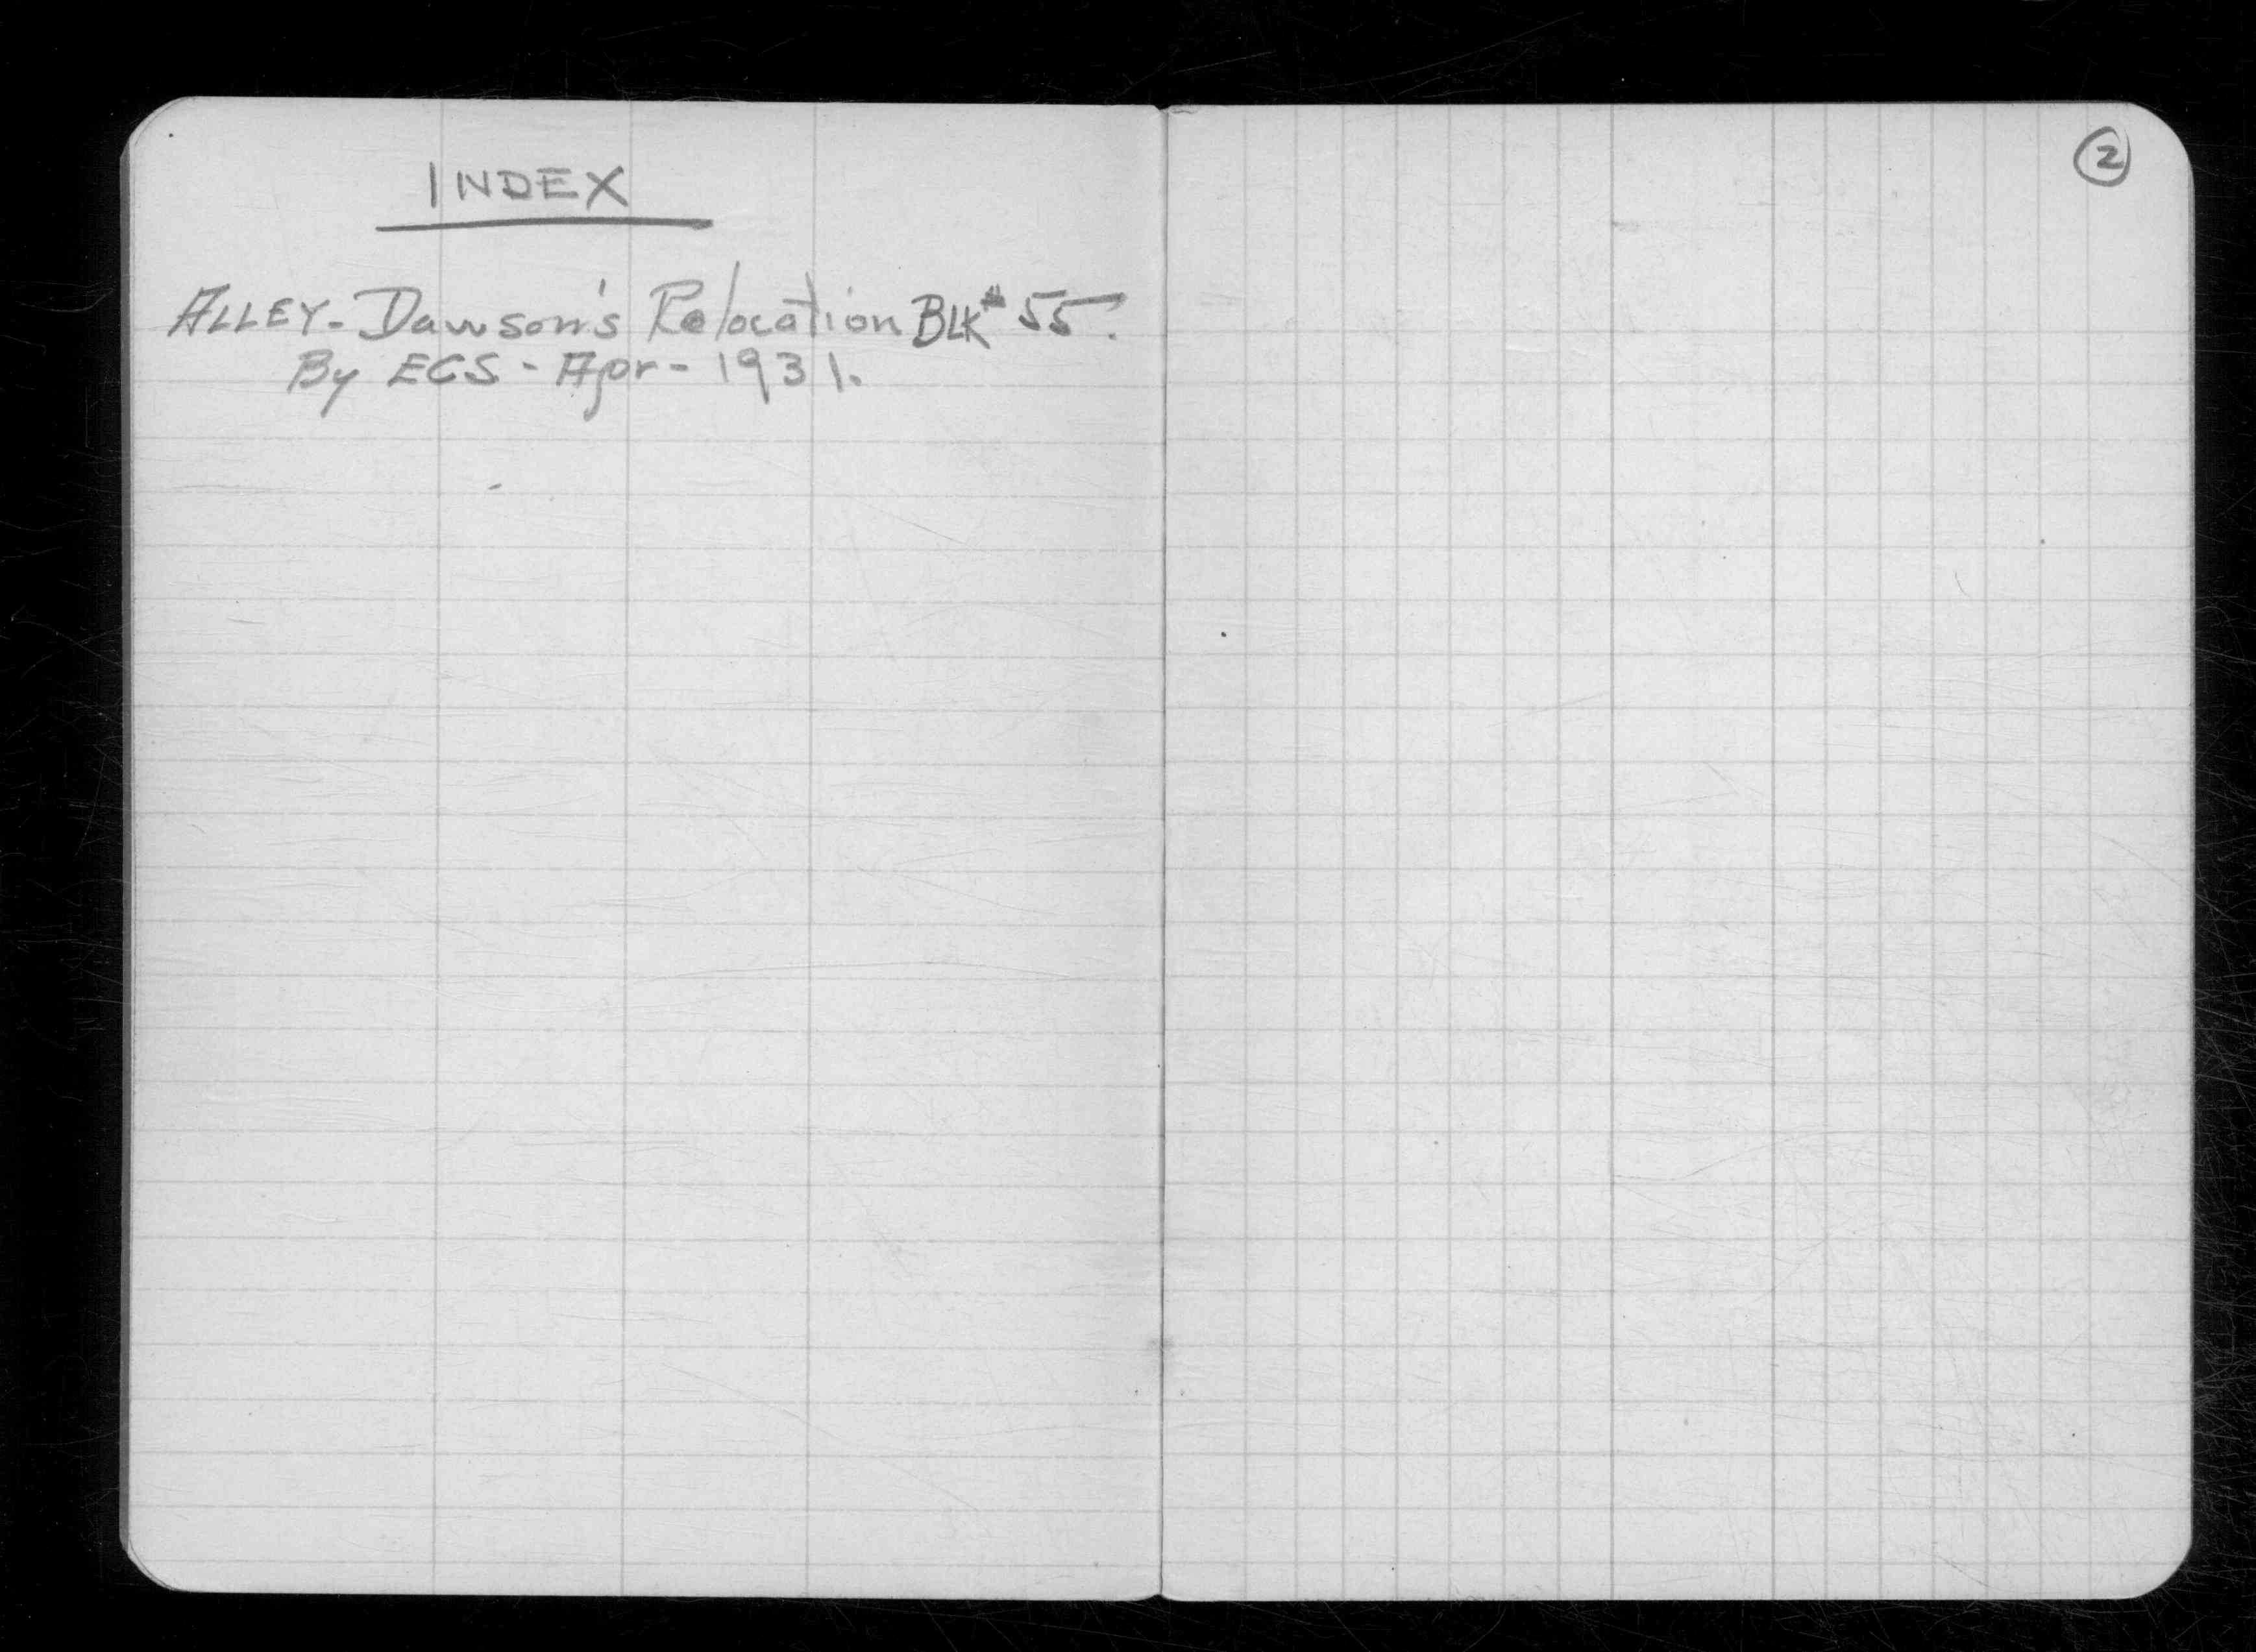 INDEX
ALLEY - Dawson's Relocation BLK # 55.
By ECS - Apr - 1931.
2